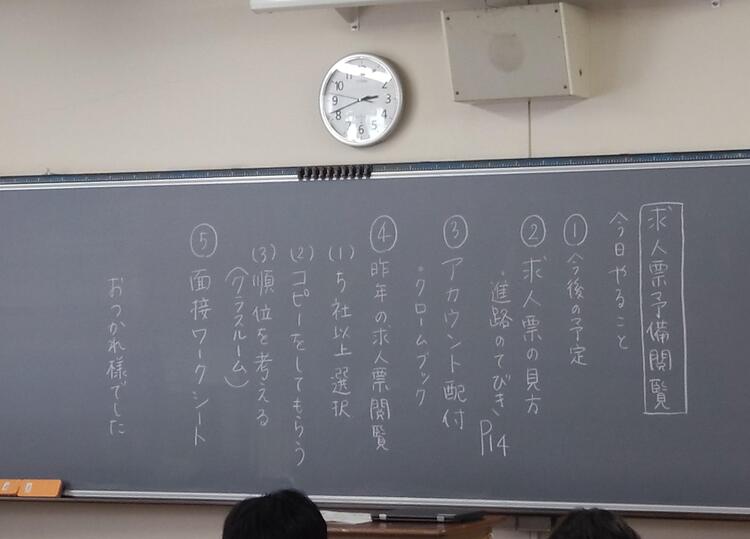 求人票予備閲覧
今日やること
① 今後の予定
② 求人票の見方
・進路のてびき P14
③ アカウント配付
・クロームブック
④ 昨年の求人票閲覧
(1) 5社以上選択
(2) コピーをしてもらう
(3) 順位を考える
(クラスルーム)
⑤ 面接ワークシート
おつかれ様でした
11
2
10
3
9
4
8
5
7
6